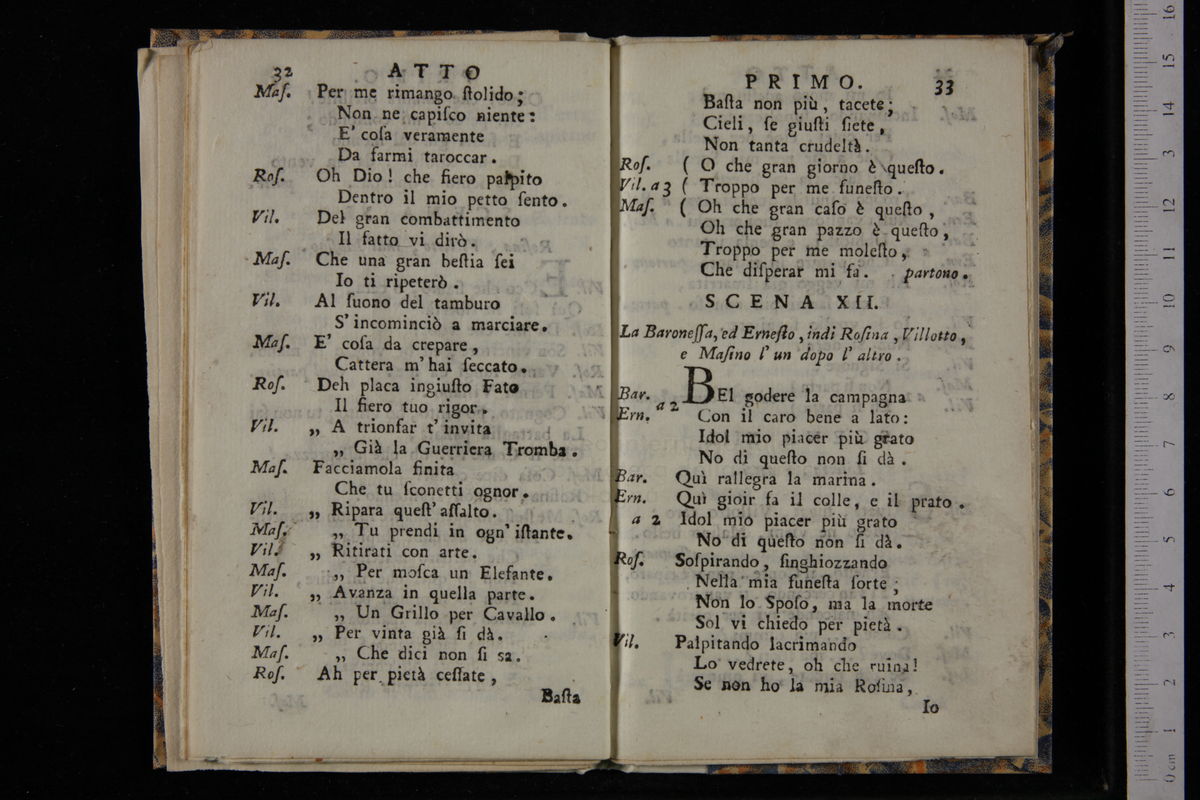 32 ATTO
Maſ. Per me rimango ſtolido;
Non ne capiſco niente:
E' coſa veramente
Da farmi taroccar.
Roſ. Oh Dio! che fiero palpito
Dentro il mio petto ſento.
Vil. Del gran combattimento
Il fatto vi dirò.
Maſ. Che una gran beſtia ſei
Io ti ripeterò.
Vil. Al ſuono del tamburo
S'incominciò a marciare.
Maſ. E' coſa da crepare,
Cattera m'hai ſeccato.
Roſ. Deh placa ingiuſto Fato
Il fiero tuo rigor.
Vil. „ A trionfar t'invita
„ Già la Guerriera Tromba.
Maſ. Facciamola finita
Che tu ſconetti ognor.
Vil. „ Ripara queſt'aſſalto.
Maſ. „ Tu prendi in ogn'iſtante.
Vil. „ Ritirati con arte.
Maſ. „ Per moſca un Elefante.
Vil. „ Avanza in quella parte.
Maſ. „ Un Grillo per Cavallo.
Vil. „ Per vinta già ſi dà.
Maſ. „ Che dici non ſi sa.
Roſ. Ah per pietà ceſſate,
Baſta
PRIMO. 33
Baſta non più, tacete;
Cieli, ſe giuſti ſiete,
Non tanta crudeltà.
Roſ. ( O che gran giorno è queſto.
Vil. a 3 ( Troppo per me funeſto.
Maſ. ( Oh che gran caſo è queſto,
Oh che gran pazzo è queſto,
Troppo per me moleſto,
Che diſperar mi fa. partono.
SCENA XII.
La Baroneſſa, ed Erneſto, indi Roſina, Villotto,
e Maſino l'un dopo l'altro.
Bar. a 2 BEl godere la campagna
Ern. Con il caro bene a lato:
Idol mio piacer più grato
No di queſto non ſi dà.
Bar. Quì rallegra la marina.
Ern. Quì gioir fa il colle, e il prato.
a 2 Idol mio piacer più grato
No di queſto non ſi dà.
Roſ. Soſpirando, ſinghiozzando
Nella mia funeſta ſorte;
Non lo Spoſo, ma la morte
Sol vi chiedo per pietà.
Vil. Palpitando lacrimando
Lo vedrete, oh che ruina!
Se non ho la mia Roſina,
Io